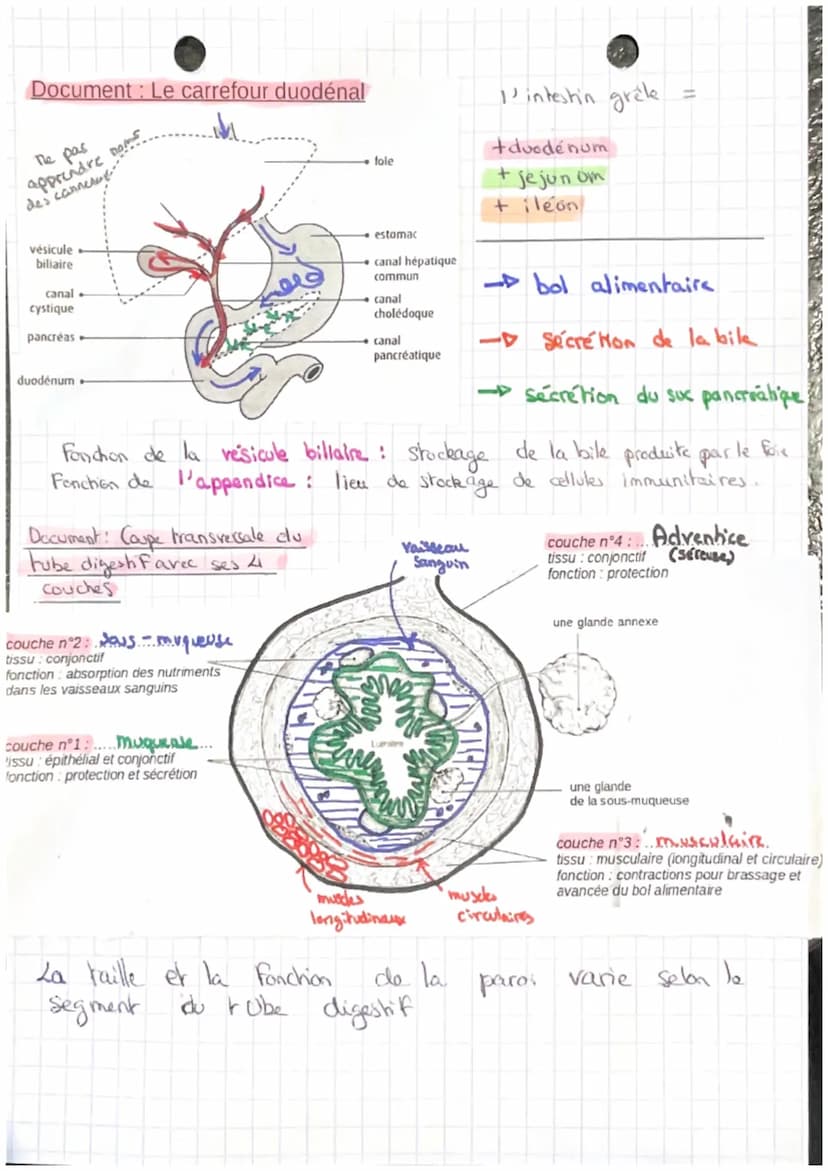 Document : Le carrefour duodénal
Ne pas
apprendre noms
des canneaux
foie
estomac
vésicule
biliaire
canal hépatique
commun
canal
cystique
canal
cholédoque
pancréas
canal
pancréatique
duodénum
l'intestin grêle =
+ duodénum
+ jejunom
+ iléon
→ bol alimentaire
→ sécrétion de la bile
→ sécrétion du suc pancréatique
Fonction de la vésicule biliaire : stockage de la bile produite par le foie
Fonction de l'appendice : lieu de stockage de cellules immunitaires.
Document : Coupe transversale du
tube digestif avec ses 4
couches
vaisseau
sanguin
couche n°4 : ... Adventice
(séreuse)
tissu : conjonctif
fonction : protection
une glande annexe
couche n°2 : . Sous-muqueuse
tissu : conjonctif
fonction : absorption des nutriments
dans les vaisseaux sanguins
couche n°1 : ..... muqueuse ...
tissu : épithélial et conjonctif
fonction : protection et sécrétion
Lumière
une glande
de la sous-muqueuse
couche n°3 : .. musculaire.
tissu : musculaire (longitudinal et circulaire)
fonction : contractions pour brassage et
avancée du bol alimentaire
muscles
longitudinaux
muscles
circulaires
La taille et la fonction de la paroi varie selon le
segment du tube digestif